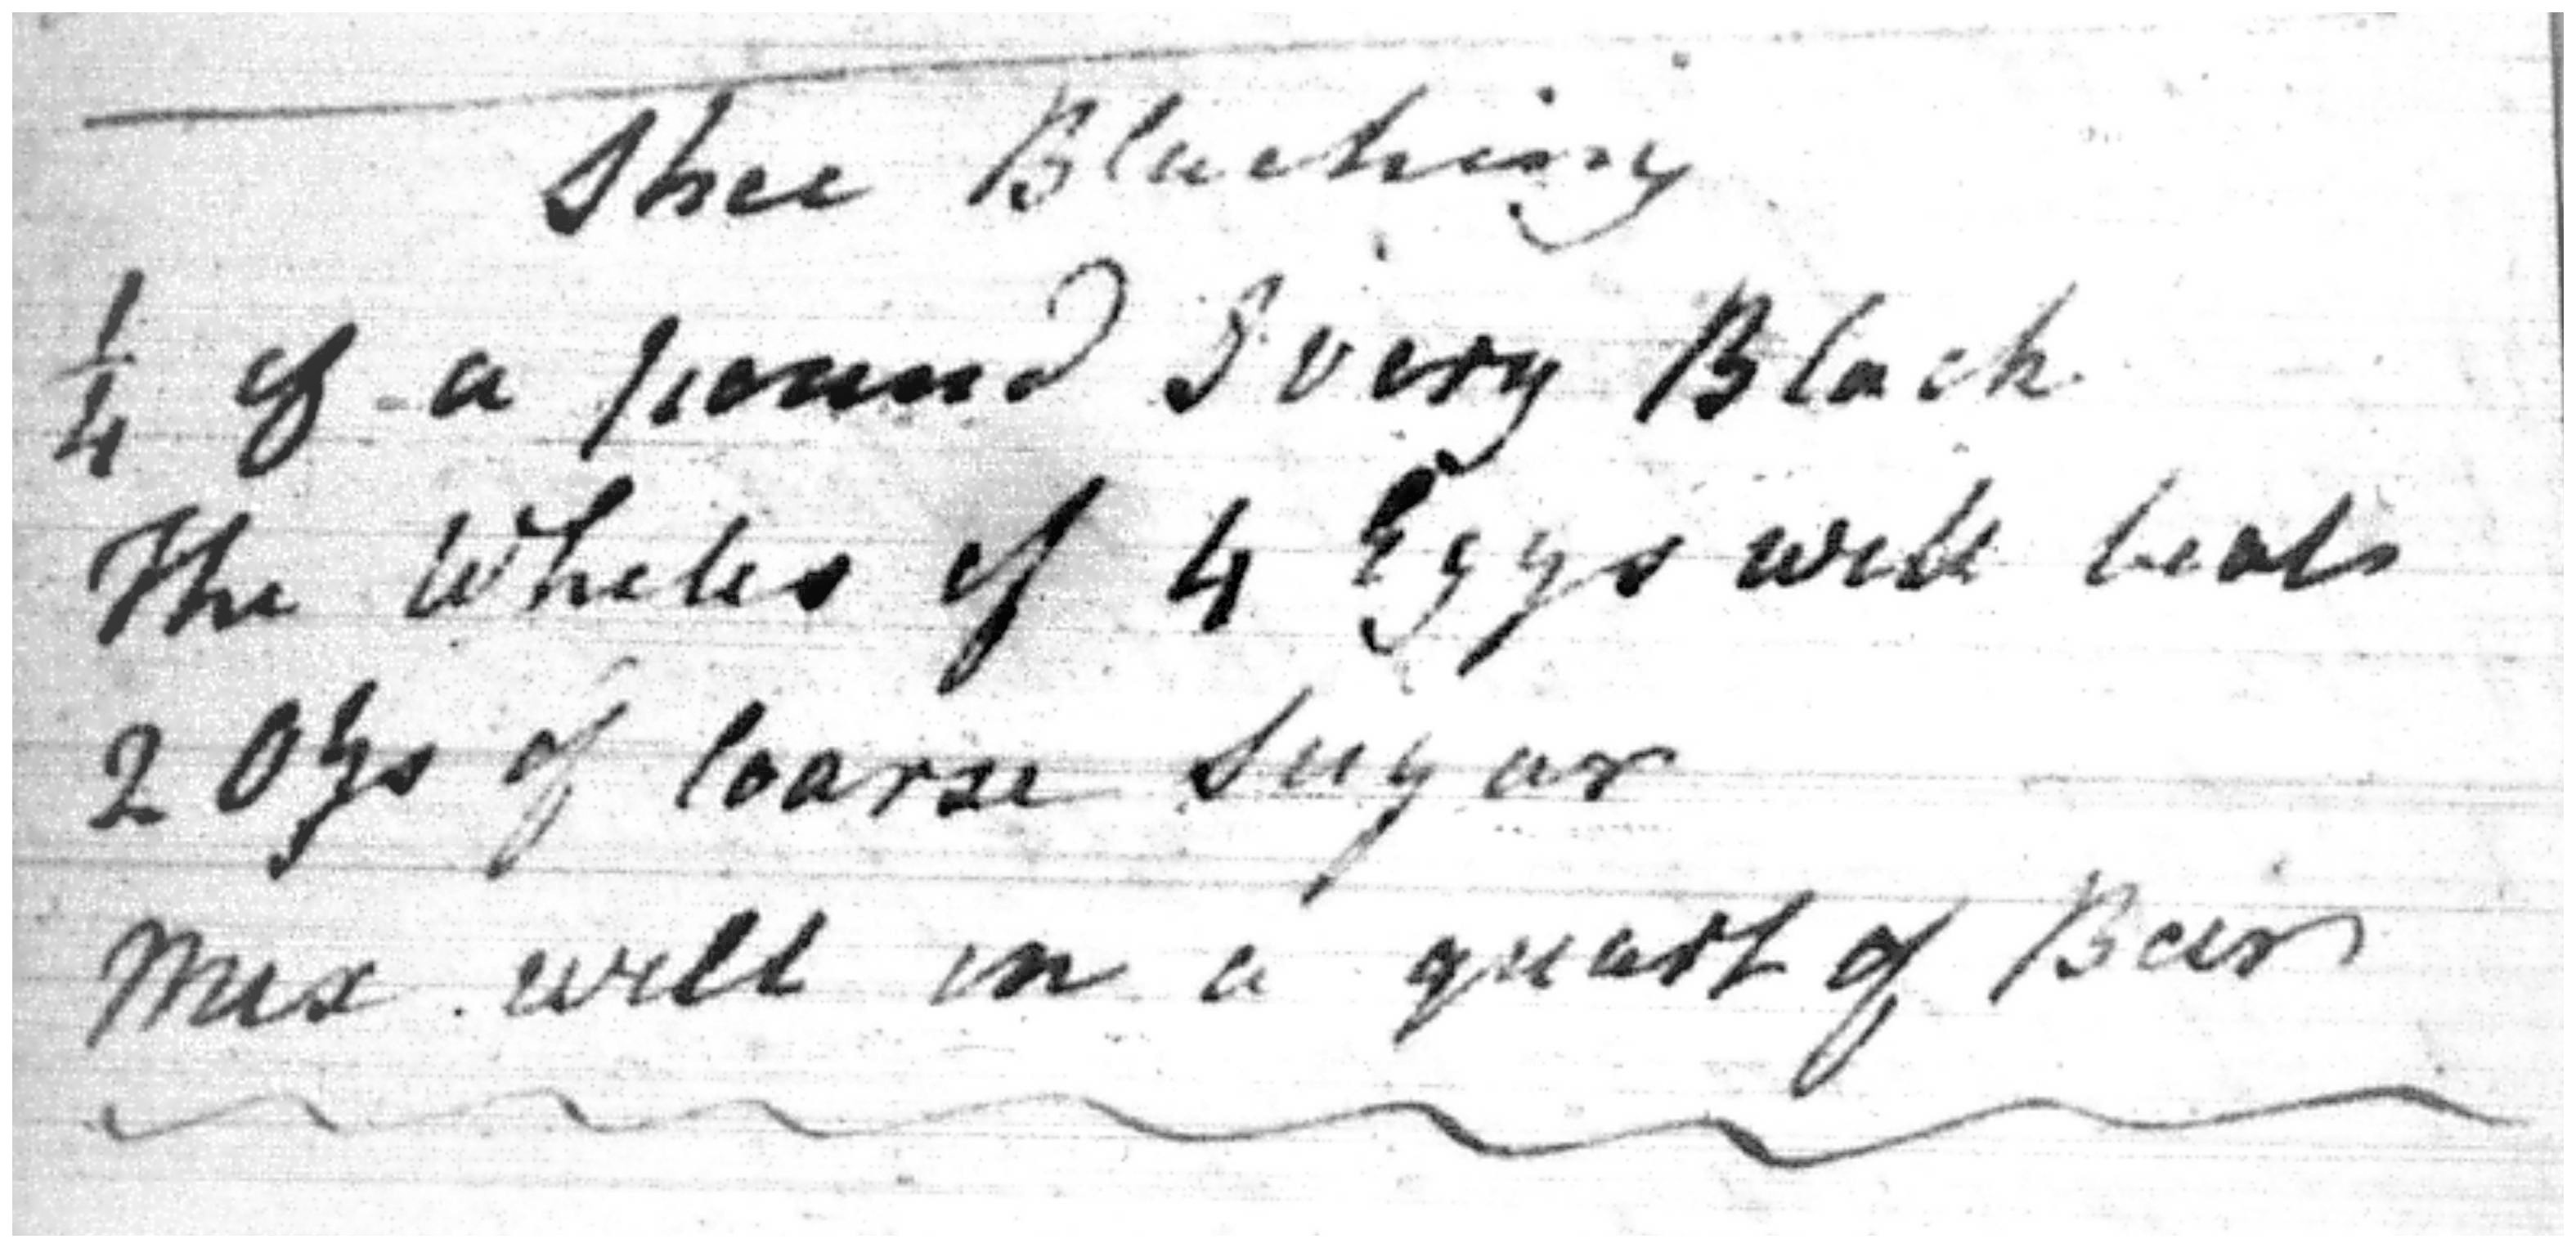 Shoe Blacking
1/4 of a pound Ivory Black
The Whites of 4 Eggs well beat
2 Ozs of Coarse Sugar
Mix well in a quart of Beer